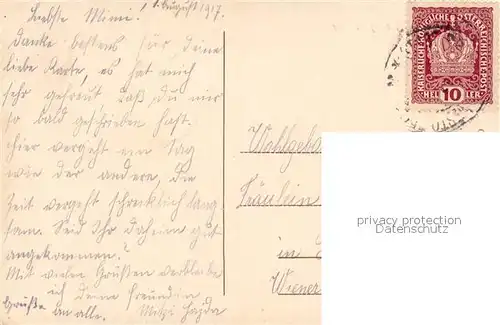 1. August 1917.
Liebste Mimi!
Danke bestens für deine
liebe Karte, es hat mich
sehr gefreut daß du mir
so bald geschrieben hast.
Hier vergeht ein Tag
wie der andere, die
Zeit vergeht schrecklich lang
sam. Seid Ihr daheim gut
angekommen?
Mit vielen Grüßen verbleibe
ich deine Freundin
Mitzi Hajda
Grüße an alle.
KAISERLICHE KÖNIGLICHE ÖSTERREICHISCHE POST
HELLER 10
Wohlgeb
Fräulein
in
Wiener
privacy protection
Datenschutz